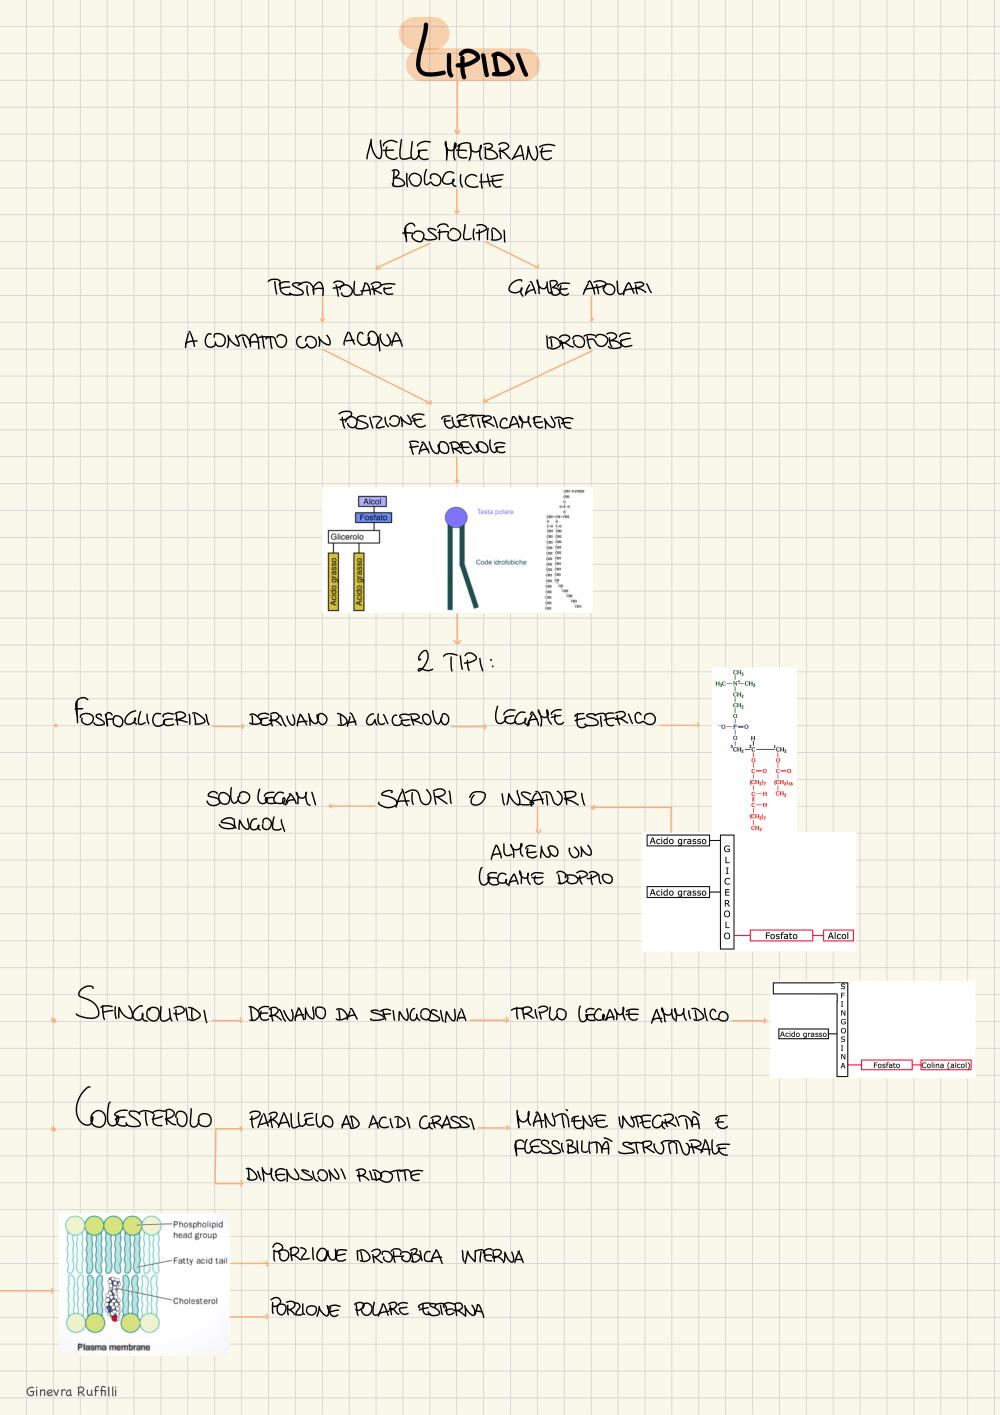 LIPIDI
NELLE MEMBRANE
BIOLOGICHE
FOSFOLIPIDI
TESTA POLARE
GAMBE APOLARI
A CONTATTO CON ACQUA
IDROFOBE
POSIZIONE ELETTRICAMENTE
FAVOREVOLE
Alcol
Fosfato
Glicerolo
Acido grasso
Acido grasso
Testa polare
Code idrofobiche
2 TIPI:
FOSFOGLICERIDI
DERIVANO DA GLICEROLO
LEGAME ESTERICO
CH₃
H₃C—N⁺—CH₃
CH₂
CH₂
O
⁻O—P=O
O
H
³CH₂—²C—¹CH₂
O O
C=O C=O
(CH₂)₇ (CH₂)₁₆
C—H CH₃
C—H
(CH₂)₇
CH₃
SATURI O INSATURI
SOLO LEGAMI
SINGOLI
ALMENO UN
LEGAME DOPPIO
Acido grasso
Acido grasso
GLICEROLO
Fosfato
Alcol
SFINGOLIPIDI
DERIVANO DA SFINGOSINA
TRIPLO LEGAME AMMIDICO
SFINGOSINA
Acido grasso
Fosfato
Colina (alcol)
COLESTEROLO
PARALLELO AD ACIDI GRASSI
MANTIENE INTEGRITÀ E
FLESSIBILITÀ STRUTTURALE
DIMENSIONI RIDOTTE
Phospholipid
head group
Fatty acid tail
Cholesterol
Plasma membrane
PORZIONE IDROFOBICA INTERNA
PORZIONE POLARE ESTERNA
Ginevra Ruffilli